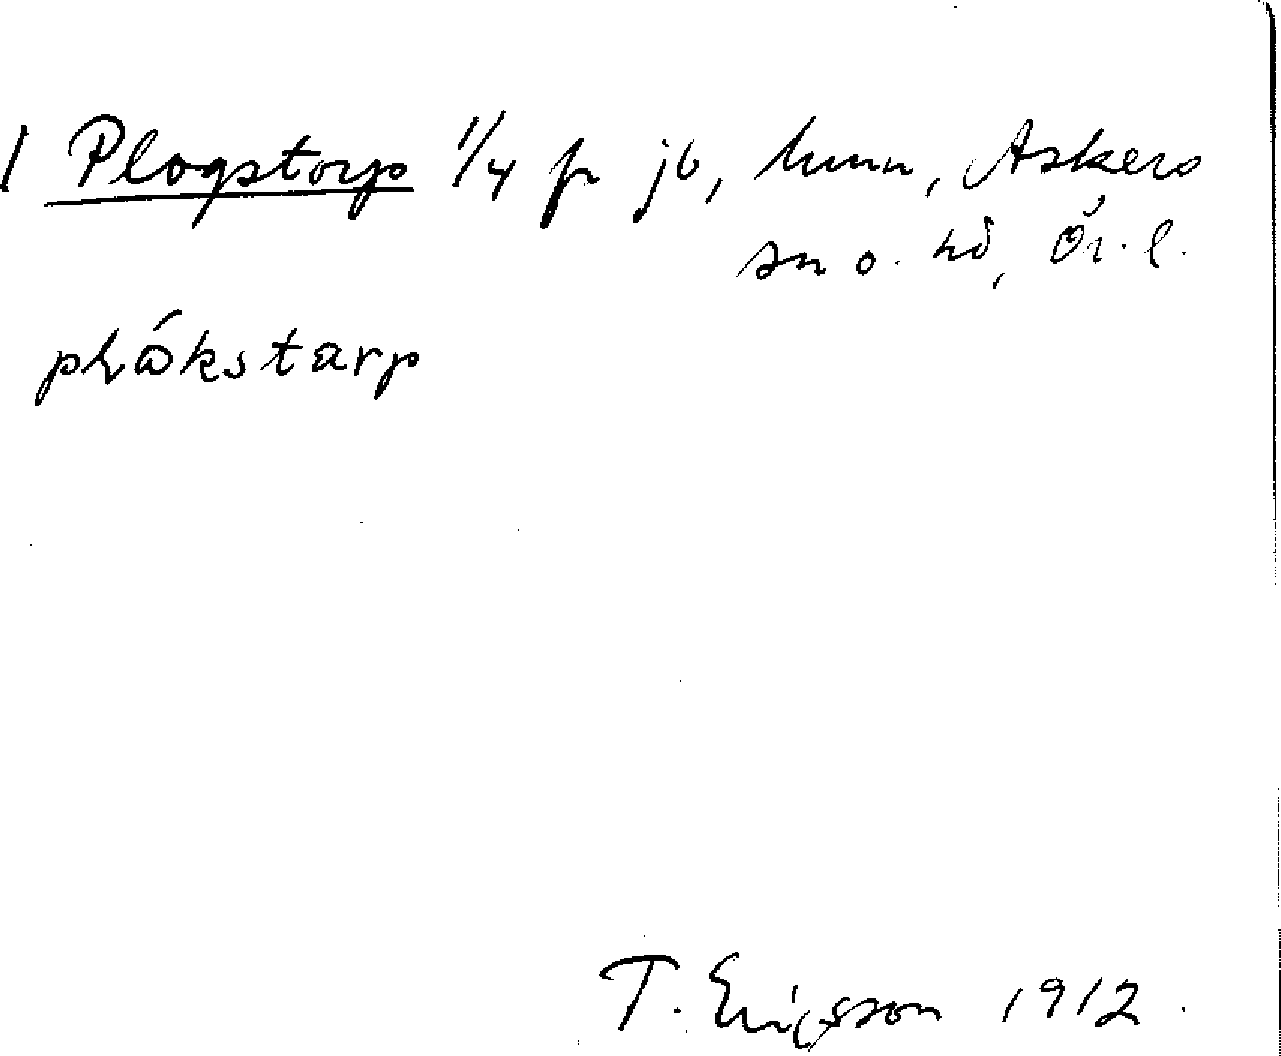 1 Plogstorp 1/4 fr jb, hmn, Askers
sn o. hd, Ör. l.
plɷ́kstarp
T. Ericsson 1912.